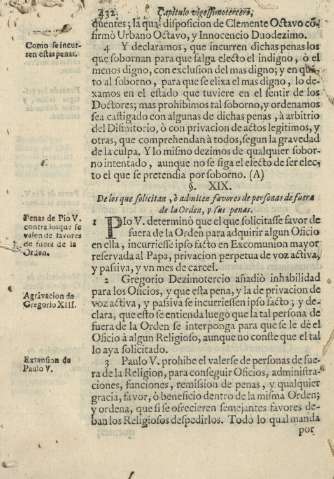 432 Capitulo vigesimotercero,
quentes; la qual disposicion de Clemente Octavo cõ-
firmò Urbano Octavo, y Innocencio Duodezimo.
Como se incur-
ren estas penas.
4 Y declaramos, que incurren dichas penas los
que sobornan para que salga electo el indigno, ò el
menos digno, con exclusion del mas digno; y en quã-
to al soborno, para que se elixa el mas digno, lo de-
xamos en el estado que tuviere en el sentir de los
Doctores; mas prohibimos tal soborno, y ordenamos
sea castigado con algunas de dichas penas, à arbitrio
del Difinitorio, ò con privacion de actos legitimos, y
otras, que comprehendan à todos, segun la gravedad
de la culpa. Y lo mismo dezimos de qualquier sobor-
no intentado, aunque no se siga el efecto de ser elec-
to el que se pretendia por soborno. (A)
§. XIX.
De los que solicitan, ò admiten favores de personas de fuera
de la Orden, y sus penas.
Penas de Pio V.
contra los que se
valen de favores
de fuera de la
Orden.
1 PIo V. determinò que el que solicitasse favor de
fuera de la Orden para adquirir algun Oficio
en ella, incurriesse ipso facto en Excomunion mayor
reservada al Papa, privacion perpetua de voz activa,
y passiva, y vn mes de carcel.
Agravacion de
Gregorio XIII.
2 Gregorio Dezimotercio añadiò inhabilidad
para los Oficios, y que ella pena, y la de privacion de
voz activa, y passiva se incurriessen ipso facto; y de-
clara, que esto se entienda luego que la tal persona de
fuera de la Orden se interponga para que se le dè el
Oficio à algun Religioso, aunque no conste que el tal
lo aya solicitado.
Extension de
Paulo V.
3 Paulo V. prohibe el valerse de personas de fue-
ra de la Religion, para conseguir Oficios, administra-
ciones, funciones, remission de penas, y qualquier
gracia, favor, ò beneficio dentro de la misma Orden;
y ordena, que si se ofrecieren semejantes favores de-
ban los Religiosos despedirlos. Todo lo qual manda
po